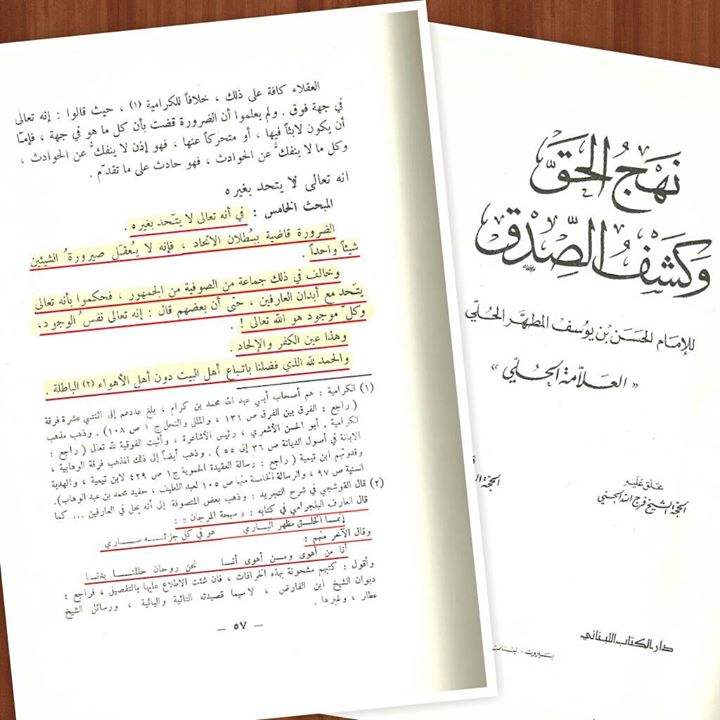 العقلاء كافة على ذلك ، خلافاً للكرامية (١) ، حيث قالوا : إنه تعالى
في جهة فوق . ولم يعلموا أن الضرورة قضت بأن كل ما هو في جهة ، فإمّا
أن يكون لابثاً فيها ، أو متحركاً عنها ، فهو إذن لا ينفكُّ عن الحوادث ،
وكل ما لا ينفك عن الحوادث ، فهو حادث على ما تقدّم .
انه تعالى لا يتحد بغيره
المبحث الخامس : في أنه تعالى لا يتّحد بغيره .
الضرورة قاضية ببُطلان الاتحاد ، فإنه لا يُعقل صيرورةُ الشيئين
شيئاً واحداً .
وخالف في ذلك جماعة من الصوفية من الجمهور ، فحكموا بأنه تعالى
يتّحد مع أبدان العارفين ، حتى أن بعضهم قال : إنه تعالى نفسُ الوجود ،
وكلّ موجود هو الله تعالى ! .
وهذا عين الكفر والإلحاد .
والحمد لله الذي فضلنا باتباع أهل البيت دون أهل الأهواء (٢) الباطلة .
(١) الكرامية : هم أصحاب أبي عبد الله محمد بن كرام ، بلغ عددهم إلى اثنتي عشرة فرقة
( راجع : الفرق بين الفرق ص ١٣١ ، والملل والنحل ج ١ ص ١٠٨ ) . وذهب مذهب
الكرامية . أبو الحسن الأشعري ، رئيس الأشاعرة ، وأثبت الفوقية لله تعالى ( راجع :
الابانة في أصول الديانة ص ٣٦ إلى ٥٥ ) . وذهب أيضاً إلى ذلك المذهب فرقة الوهابية ،
وقدوتهم ابن تيمية ( راجع : رسالة العقيدة الحموية ج ١ ص ٤٢٩ لابن تيمية ، والهدية
السنية ص ٩٧ ، والرسالة الخامسة منها ص ١٠٥ لعبد اللطيف ، حفيد محمد بن عبد الوهاب ) .
(٢) قال القوشجي في شرح التجريد : وذهب بعض المتصوفة إلى أنه يحل في العارفين ... كما
قال العارف البلجرامي في كتابه : « سبحة المرجان » :
إنمــا الخلــق مظهر البــاري هو في كل جزئــه ســاري
وقال الآخر منهم :
أنا من أهوى ومــن أهوى أنــا نحن روحان حللنــا بدنــا
وأقول : كتبهم مشحونة بهذه الخرافات ، فان شئت الاطلاع عليها بالتفصيل ، فراجع :
ديوان الشيخ ابن الفارض ، لاسيما قصيدته التائية واليائية ، ورسائل الشيخ
عطار ، وغيرها .
— ٥٧ —
نهج الحق
وكشف الصدق
للإمام الحسن بن يوسف المطهر الحلي
« العلامة الحلي »
علق عليه
الحجة الشيخ فرج الله الحسني
دار الكتاب اللبناني
بيروت - لبنان